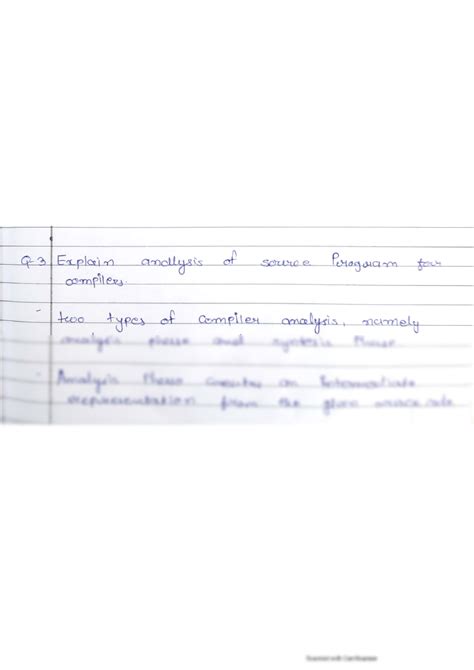 Q-3 Explain analysis of source Program for
compilers.
- two types of compiler analysis, namely
analysis phase and syntesis Phase
- Analysis Phase creates an Intermediate
representation from the given source code